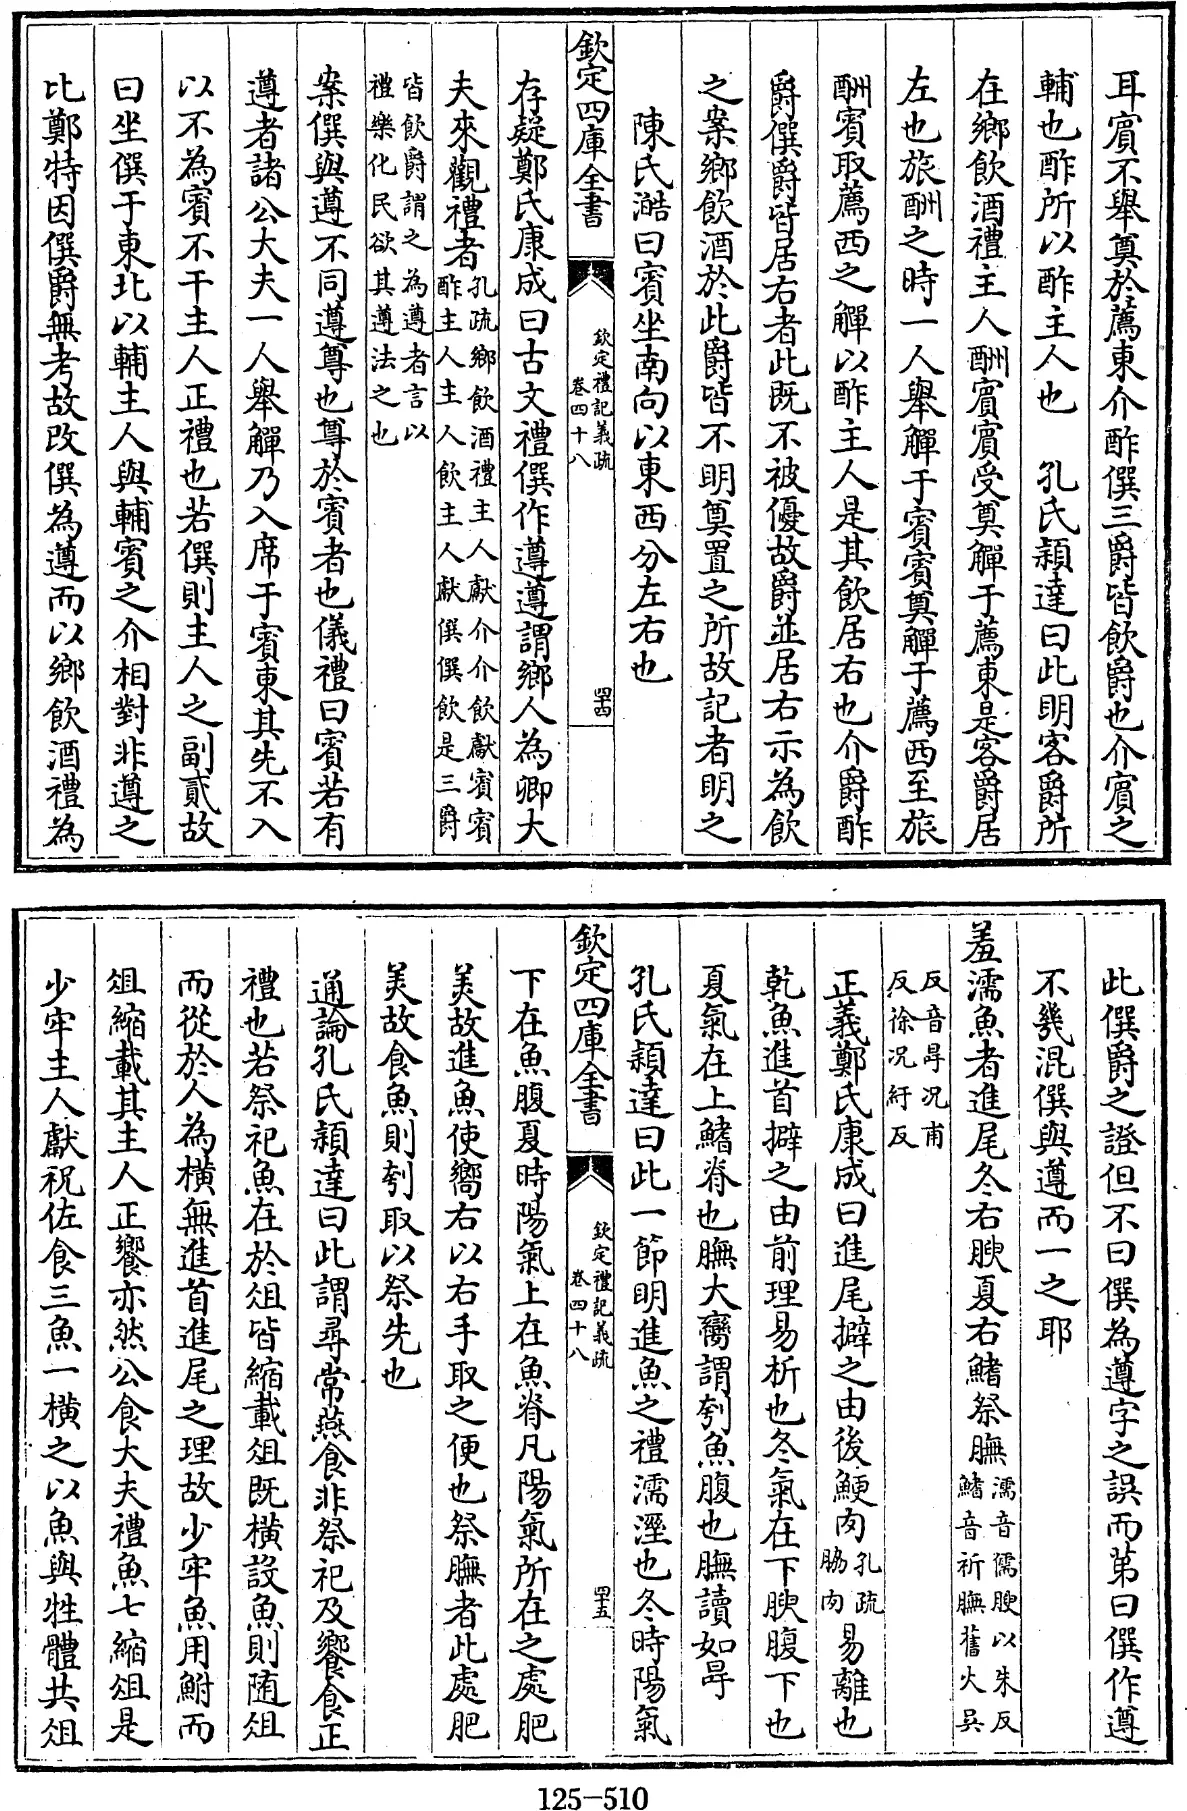 耳賓不舉奠於薦東介酢僎三爵皆飲爵也介賓之
輔也酢所以酢主人也　孔氏穎達曰此明客爵所
在鄉飲酒禮主人酬賓賓受奠觶于薦東是客爵居
左也旅酬之時一人舉觶于賓賓奠觶于薦西至旅
酬賓取薦西之觶以酢主人是其飲居右也介爵酢
爵僎爵皆居右者此既不被優故爵並居右示為飲
之案鄉飲酒於此爵皆不明奠置之所故記者明之
陳氏澔曰賓坐南向以東西分左右也
欽定四庫全書
欽定禮記義疏
卷四十八
四十四
存疑鄭氏康成曰古文禮僎作遵遵謂鄉人為卿大
夫來觀禮者
孔疏鄉飲酒禮主人獻介介飲獻賓賓
酢主人主人飲主人獻僎僎飲是三爵
皆飲爵謂之為遵者言以
禮樂化民欲其遵法之也
案僎與遵不同遵尊也尊於賓者也儀禮曰賓若有
遵者諸公大夫一人舉觶乃入席于賓東其先不入
以不為賓不干主人正禮也若僎則主人之副貳故
曰坐僎于東北以輔主人與輔賓之介相對非遵之
比鄭特因僎爵無考故改僎為遵而以鄉飲酒禮為
此僎爵之證但不曰僎為遵字之誤而第曰僎作遵
不幾混僎與遵而一之耶
羞濡魚者進尾冬右腴夏右鰭祭膴
濡音儒腴以朱反
鰭音祈膴舊火吳
反音冔況甫
反徐況紆反
正義鄭氏康成曰進尾擗之由後鯁肉
孔疏
脇肉
易離也
乾魚進首擗之由前理易析也冬氣在下腴腹下也
夏氣在上鰭脊也膴大臠謂刳魚腹也膴讀如冔
孔氏穎達曰此一節明進魚之禮濡溼也冬時陽氣
欽定四庫全書
欽定禮記義疏
卷四十八
四十五
下在魚腹夏時陽氣上在魚脊凡陽氣所在之處肥
美故進魚使嚮右以右手取之便也祭膴者此處肥
美故食魚則刳取以祭先也
通論孔氏穎達曰此謂尋常燕食非祭祀及饗食正
禮也若祭祀魚在於俎皆縮載俎既橫設魚則隨俎
而從於人為橫無進首進尾之理故少牢魚用鮒而
俎縮載其主人正饗亦然公食大夫禮魚七縮俎是
少牢主人獻祝佐食三魚一橫之以魚與牲體共俎
125-510